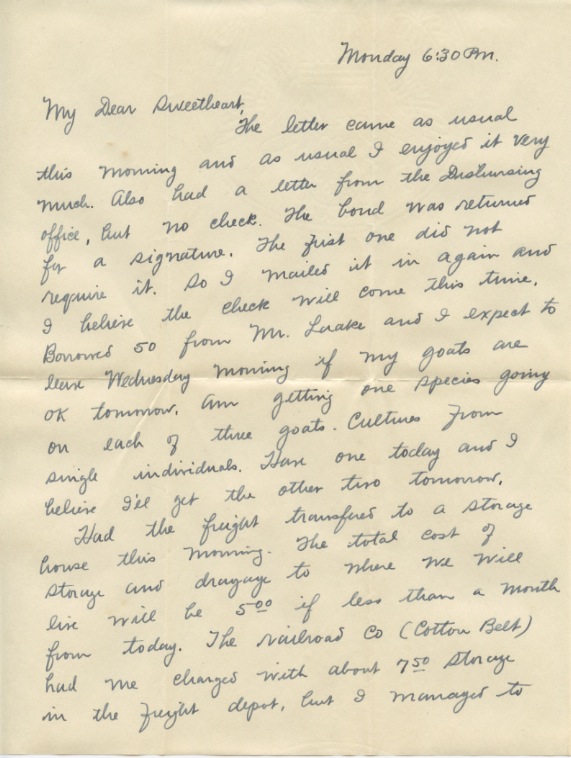 Monday 6:30 Pm.
My Dear Sweetheart,
The letter came as usual
this morning and as usual I enjoyed it very
much. Also had a letter from the Disbursing
office, but no check. The bond was returned
for a signature. The first one did not
require it. So I mailed it in again and
I believe the check will come this time.
Borrowed 50 from Mr. Laake and I expect to
leave Wednesday morning if my goats are
OK tomorrow. Am getting one species going
on each of three goats. Cultures from
single individuals. Have one today and I
believe I'll get the other two tomorrow.
Had the freight transfered to a storage
house this morning. The total cost of
storage and drayage to where we will
live will be 5.00 if less than a month
from today. The railroad Co (Cotton Belt)
had me charged with about 7.50 storage
in the freight depot, but I managed to